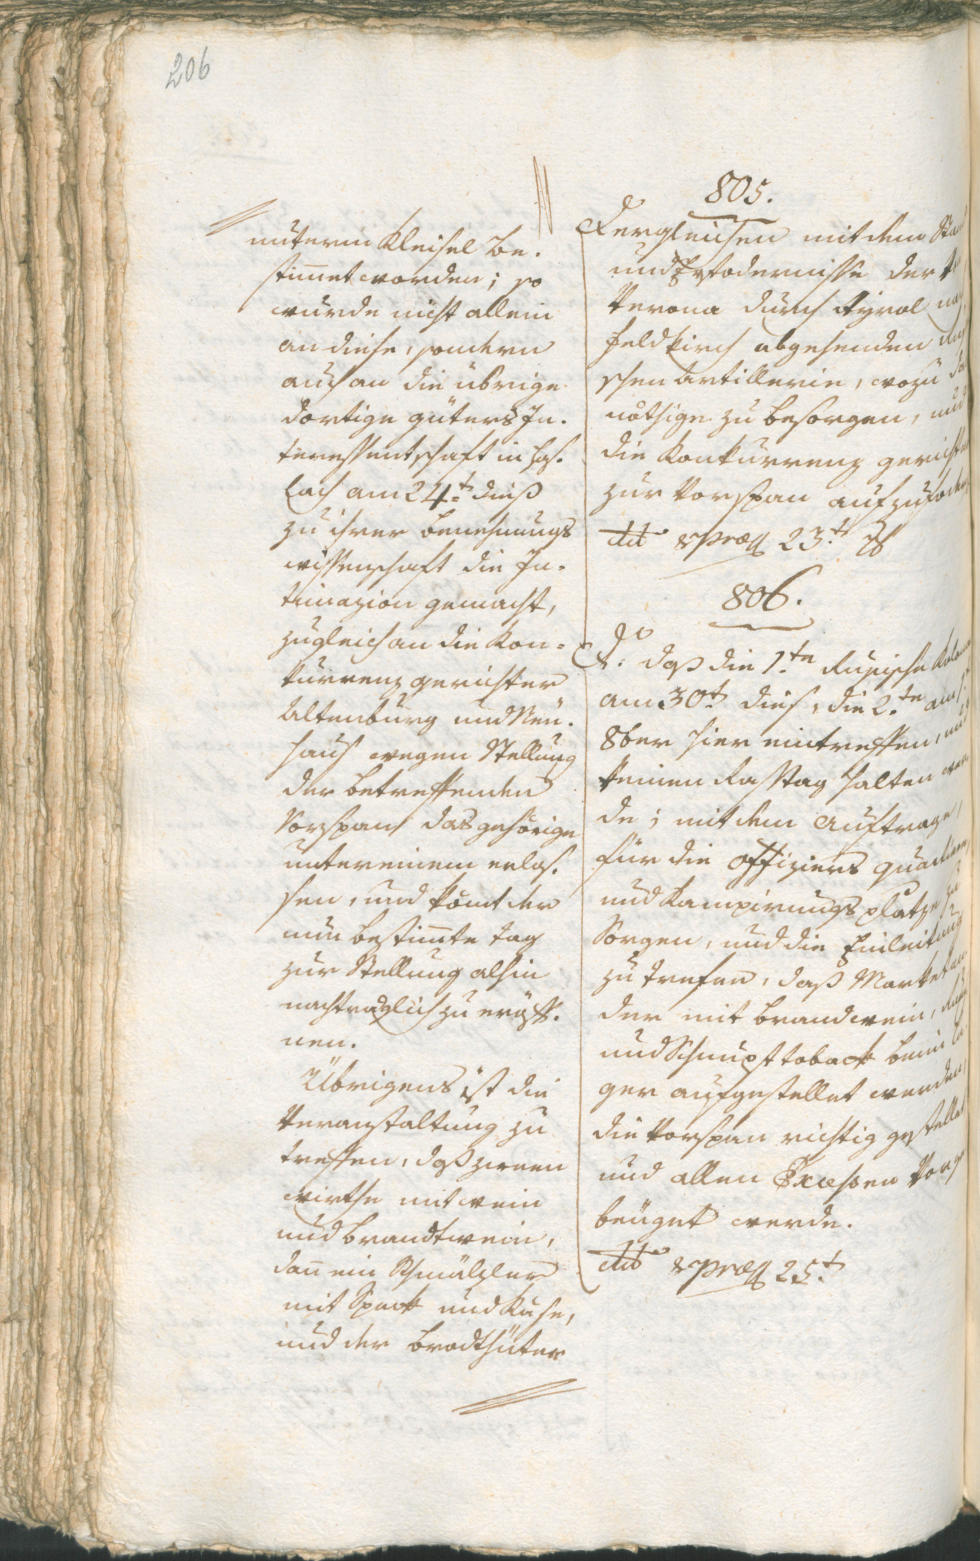 206
unterm Kleisel be-
stimet worden; so
wurde nicht allein
an diese, sondern
auch an die übrige
dortige güters In-
teressentschaft in Has-
lach am 24t. dieß
zu ihrer benehmungs
wissenschaft die In-
timazion gemacht,
zugleich an die Kon-
kurrenz gerichter
Altenburg und Neu-
haus wegen Stellung
der betreffenden
Vorspan das gehörige
untereinem erlas-
sen, und kömt der
nun bestimte tag
zur Stellung alhin
nachträglich zu eröff-
nen.
Übrigens ist die
Veranstaltung zu
treffen, daß zween
wirthe mit wein
und brandtwein,
dan ein Schmälzler
mit Speck und Käse,
und der brodhüter
805.
Dergleichen mit dem
und Erfodernisse der
Verona durch Tyrol
Feldkirch abgehenden
schen Artillerie, wozu
nöthige zu besorgen, und
die Konkurrenz gerichter
zur Vorspan aufzufodern
dd & præs 23t.
806.
do. daß die 1te Rusische Kolone
am 30t dies, die 2te am 1t
8ber hier eintreffen, und
keinen Rasttag halten wer
de; mit dem Auftrage,
für die Offiziers quartiere
und Kampirungs platze zu
Sorgen, und die Einleitung
zu trefen, daß Marketen
der mit brandwein,
und Schnupftoback beim La
ger aufgestellet werden,
die Vorspan richtig gestellet
und allen Exceßen Vorge
beüget werde.
dd & præs 25t.